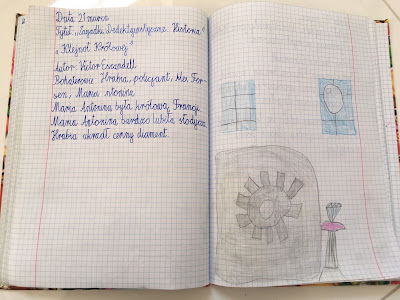 Data 21 marca
Tytuł „Zagadki Detektywistyczne. Historia"
„Klejnot Królowej"
Autor: Victor Escandell
Bohaterowie: Hrabia, policjant, Alex For-
sen, Maria Antonina
Maria Antonina była królową Francji
Maria Antonina bardzo lubiła słodycze.
Hrabia ukradł cenny diament.